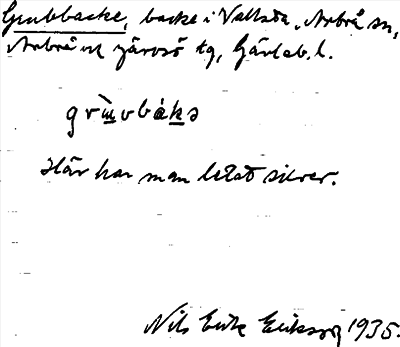 Grubbacke, backe i Vallsta, Arbrå sn,
Arbrå och Järvsö tg, Gävleb. l.
grùvbáks
Här har man letat silver.
Nils Erik Eriksson 1935.